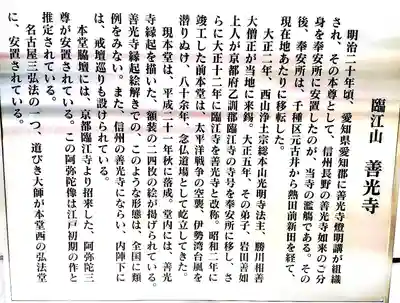 臨江山　善光寺
明治二十年頃、愛知県愛知郡に善光寺燈明講が組織
され、その本尊として、信州長野の善光寺如来のご分
身を奉安所に安置したのが、当寺の濫觴である。その
後、奉安所は、千種区元古井から熱田前新田を経て、
現在地あたりに移転した。
大正二年、西山浄土宗総本山光明寺法主、勝川相善
大僧正が当地に来錫。大正五年、その弟子、岩田善如
上人が京都府乙訓郡臨江寺の寺号を奉安所に移し、さ
らに大正十二年に臨江寺を善光寺と改称。昭和二年に
竣工した前本堂は、太平洋戦争の空襲、伊勢湾台風を
潜りぬけ、八十余年、念仏道場として屹立してきた。
現本堂は、平成二十一年秋に落成。堂内には、善光
寺縁起を描いた、額装の二四枚の絵が掲げられている。
善光寺縁起絵解きでの、このような形態は、全国に類
例をみない。また、信州の善光寺にならい、内陣下に
は、戒壇巡りも設けられている。
本堂脇壇には、京都臨江寺より招来した、阿弥陀三
尊が安置されている。この阿弥陀像は江戸初期の作と
推定されている。
名古屋三弘法の一つ、道びき大師が本堂西の弘法堂
に、安置されている。